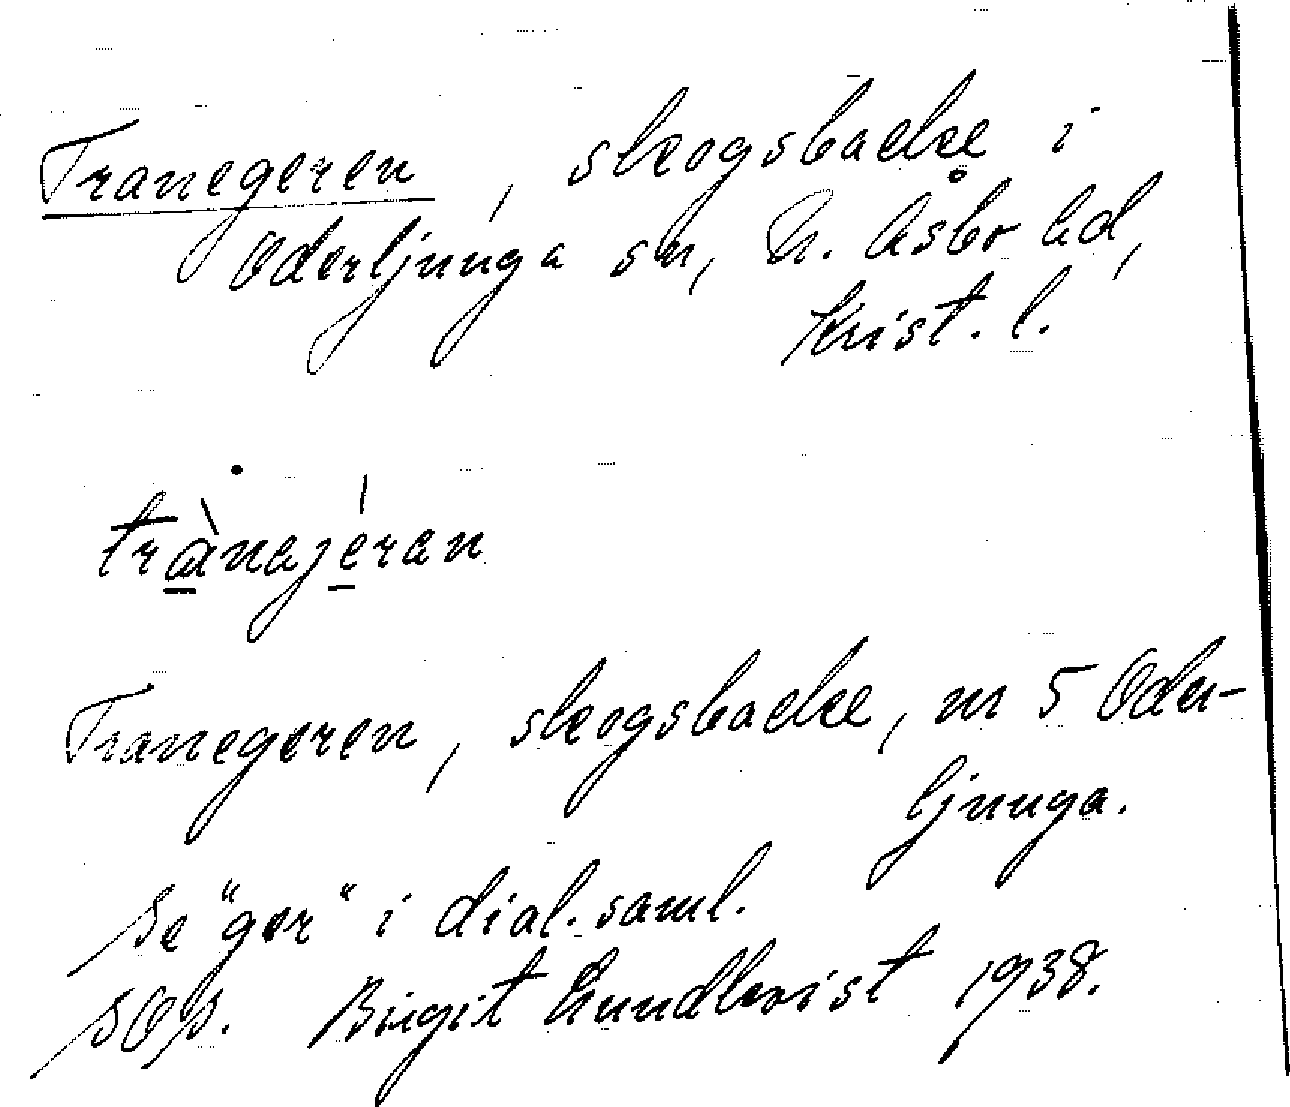 Tranegeren, skogsbacke i
Oderljunga sn, N. Åsbo hd,
Krist. l.
trànajéran
Tranegeren, skogsbacke, nr 5 Oder-
ljunga.
Se "ger" i dial. saml.
SOS. Birgit Lundkvist 1938.